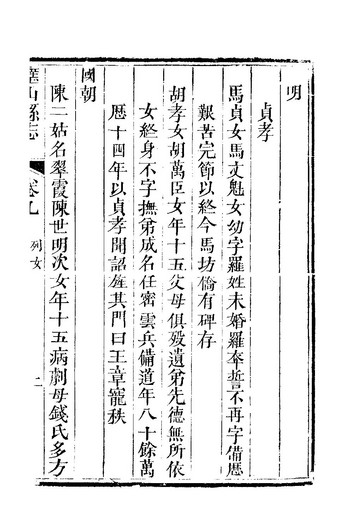 明
貞孝
馬貞女馬文魁女幼字羅姓未婚羅卒誓不再字備歷
艱苦完節以終今馬坊橋有碑存
胡孝女胡萬臣女年十五父母俱殁遺弟先德無所依
女終身不字撫弟成名任密雲兵備道年八十餘萬
歷十四年以貞孝聞詔旌其門曰王章寵秩
國朝
陳二姑名翠霞陳世明次女年十五病劇母錢氏多方
山縣志
卷九
列女
二